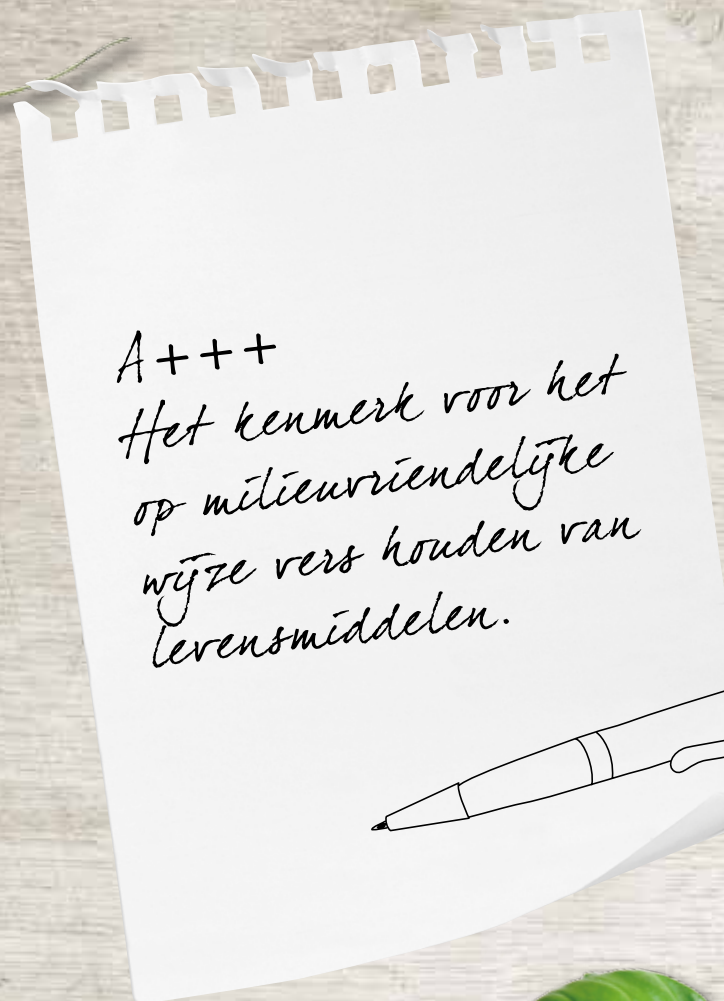 A+++
Het kenmerk voor het
op milieuvriendelijke
wijze vers houden van
levensmiddelen.